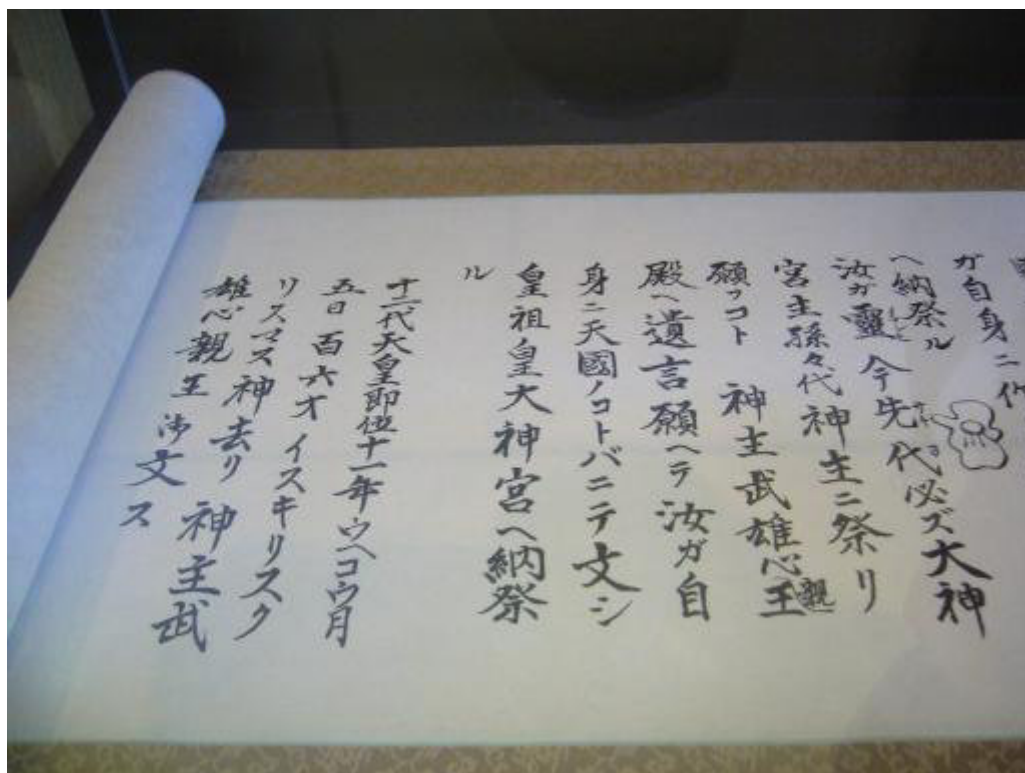 ガ自身ニ作
ヘ納祭ル
汝ガ靈 今先代必ズ大神
宮主孫々代神主ニ祭リ
願フコト 神主武雄心親王
殿ヘ遺言願ヘテ汝ガ自
身ニ天國ノコトバニテ文シ
皇祖皇大神宮ヘ納祭
ル
十二代天皇即位十一年ウヘコウ月
五日 百六才 イスキリスク
リスマス神去リ 神主武
雄心親王 文ス